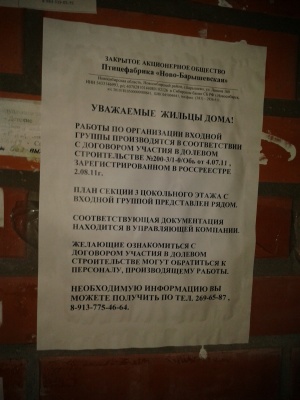 ЗАКРЫТОЕ АКЦИОНЕРНОЕ ОБЩЕСТВО
Птицефабрика «Ново-Барышевская»
УВАЖАЕМЫЕ ЖИЛЬЦЫ ДОМА!
РАБОТЫ ПО ОРГАНИЗАЦИИ ВХОДНОЙ
ГРУППЫ ПРОИЗВОДЯТСЯ В СООТВЕТСТВИИ
С ДОГОВОРОМ УЧАСТИЯ В ДОЛЕВОМ
СТРОИТЕЛЬСТВЕ №200-3/1-0/Обь от 4.07.11г.
ЗАРЕГИСТРИРОВАННОМ В РОССРЕЕСТРЕ
2.08.11г.
ПЛАН СЕКЦИИ 3 ЦОКОЛЬНОГО ЭТАЖА С
ВХОДНОЙ ГРУППОЙ ПРЕДСТАВЛЕН РЯДОМ.
СООТВЕТСТВУЮЩАЯ ДОКУМЕНТАЦИЯ
НАХОДИТСЯ В УПРАВЛЯЮЩЕЙ КОМПАНИИ.
ЖЕЛАЮЩИЕ ОЗНАКОМИТЬСЯ С
ДОГОВОРОМ УЧАСТИЯ В ДОЛЕВОМ
СТРОИТЕЛЬСТВЕ МОГУТ ОБРАТИТЬСЯ К
ПЕРСОНАЛУ, ПРОИЗВОДЯЩЕМУ РАБОТЫ.
НЕОБХОДИМУЮ ИНФОРМАЦИЮ ВЫ
МОЖЕТЕ ПОЛУЧИТЬ ПО ТЕЛ. 269-65-87,
8-913-775-46-64.